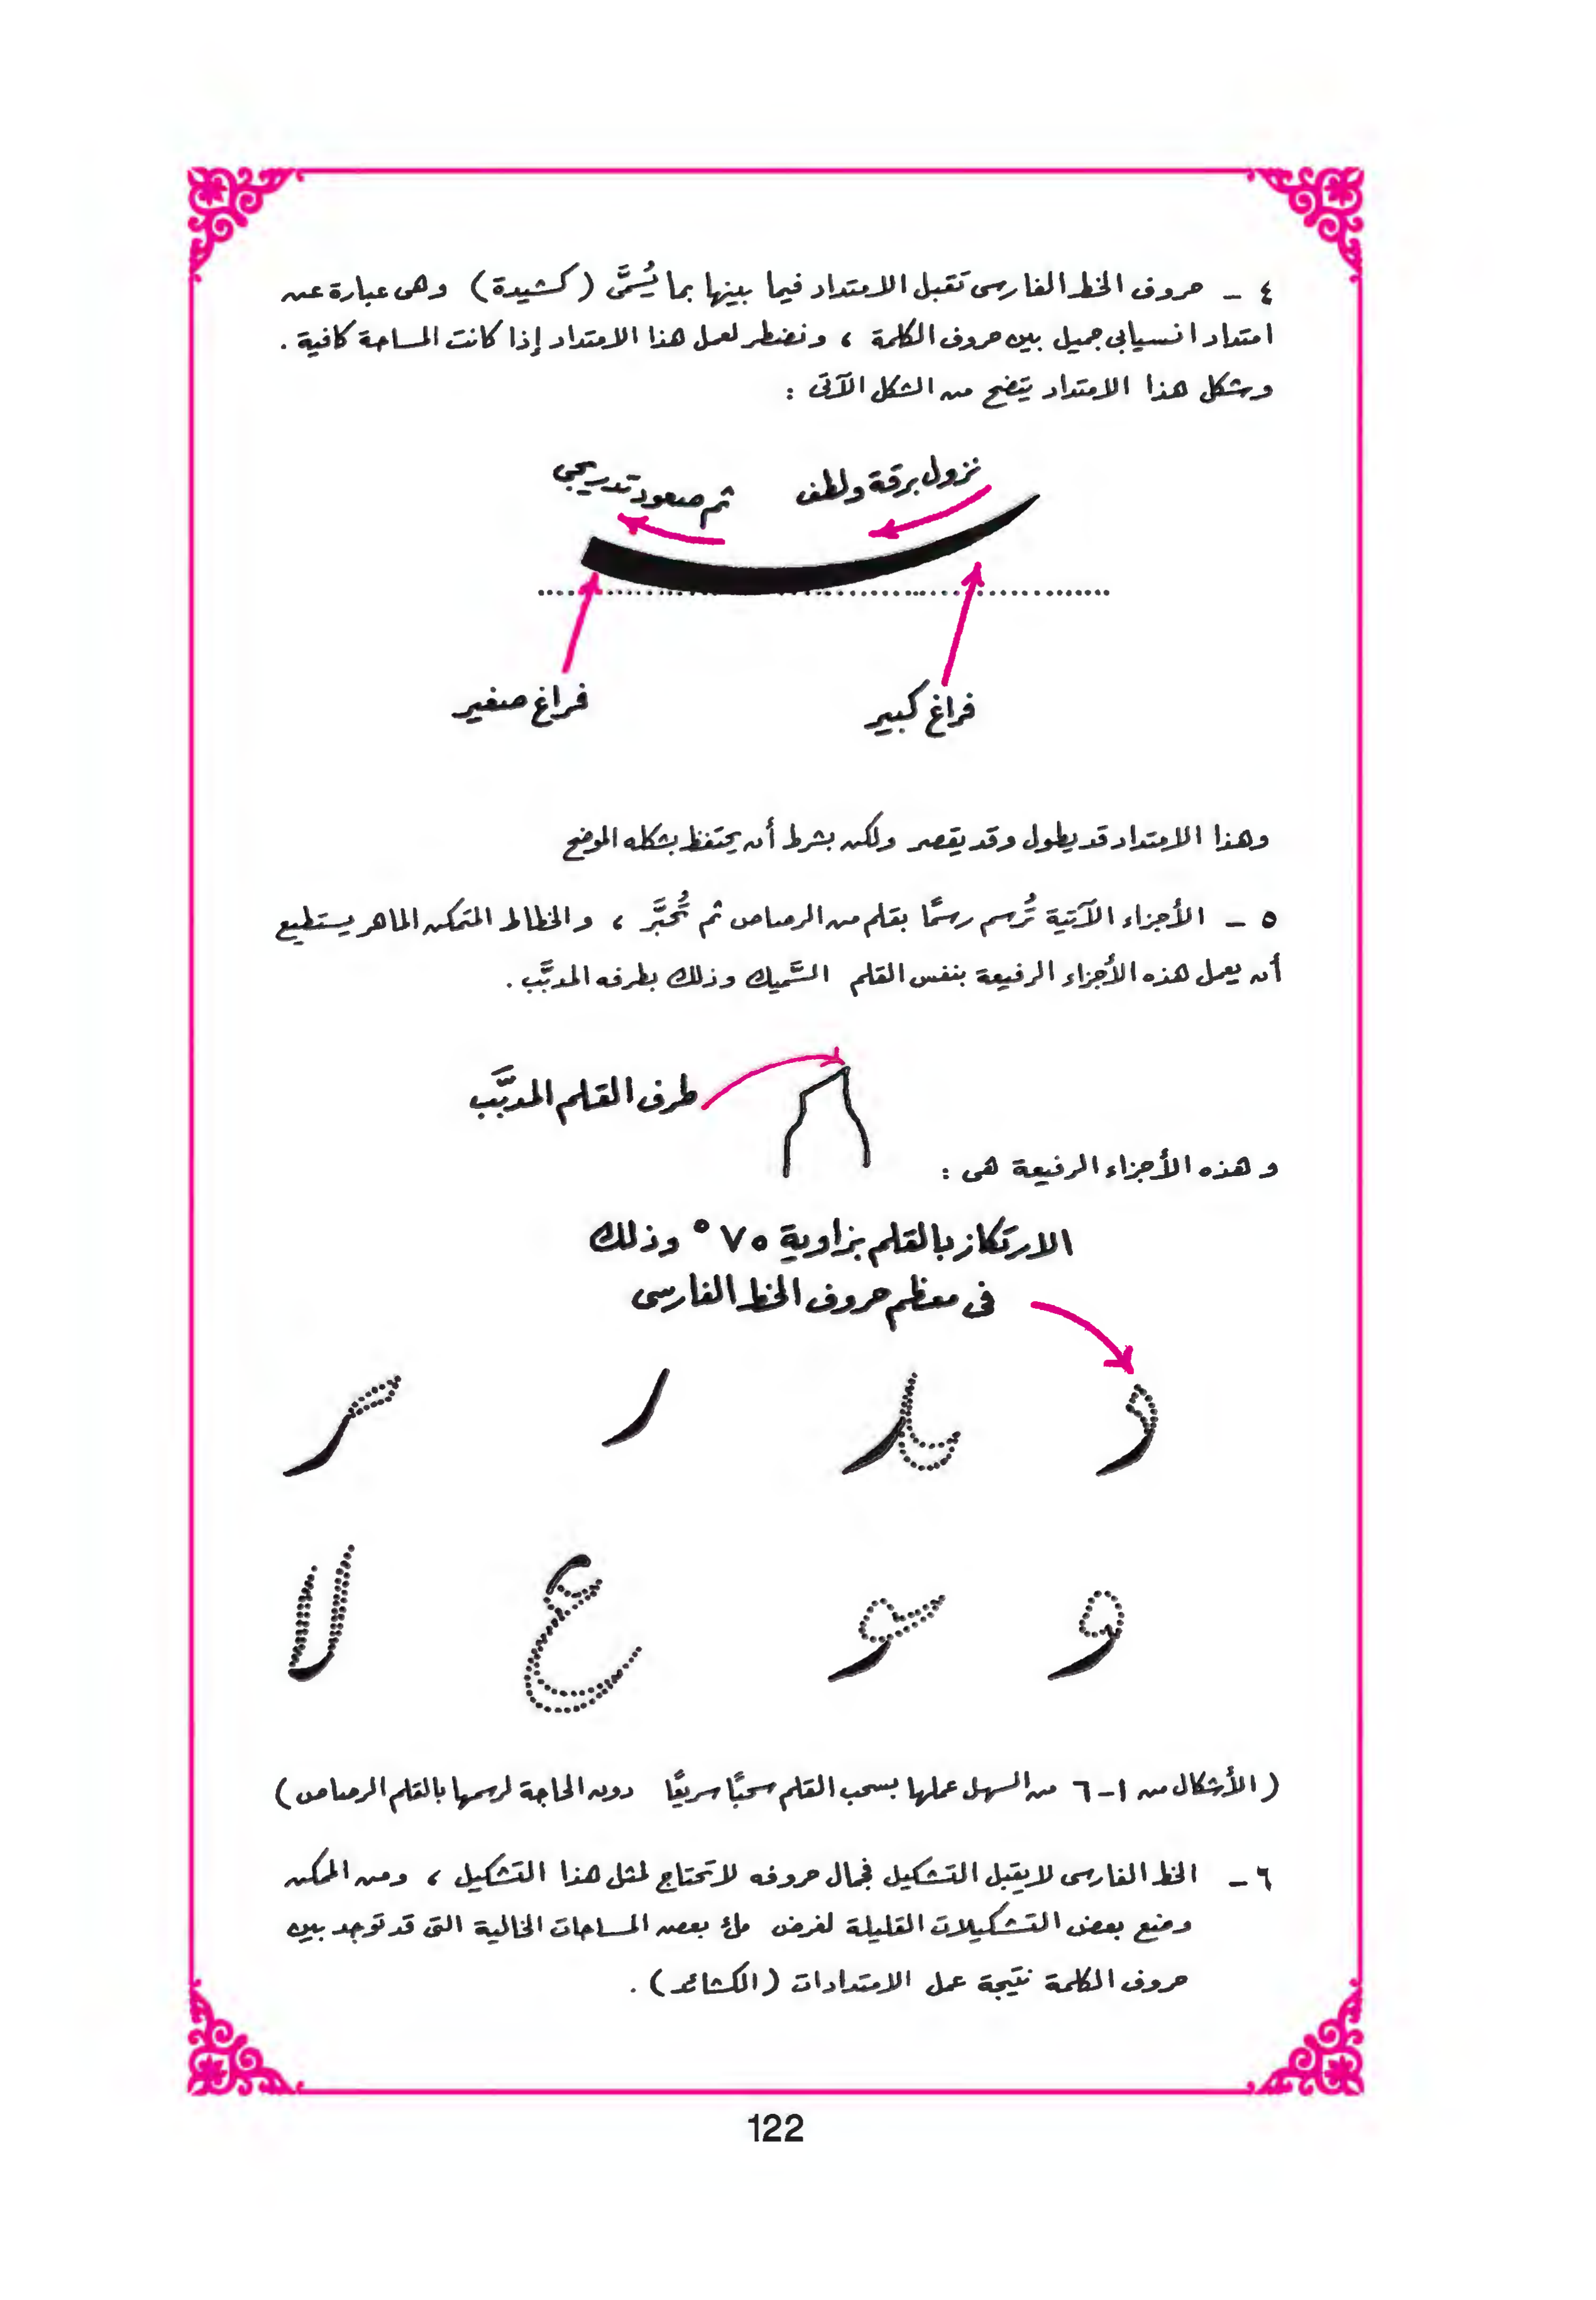 ٤ - حروف الخط الفارسى تقبل الامتداد فيما بينها بما يُسمَّى (كشيدة) وهى عبارة عن
امتداد انسيابى جميل بين حروف الكلمة ، ونضطر لعمل هذا الامتداد إذا كانت المساحة كافية .
وشكل هذا الامتداد يتضح من الشكل الآتى :
نزول برقة ولطف
ثم صعود تدريجى
فراغ كبير
فراغ صغير
وهذا الامتداد قد يطول وقد يقصر ولكن بشرط أن يحتفظ بشكله الموضح
٥ - الأجزاء الآتية تُرسم رسمًا بقلم من الرصاص ثم تُحَبَّر ، والخطاط المتمكن الماهر يستطيع
أن يعمل هذه الأجزاء الرفيعة بنفس القلم السَّميك وذلك بطرفه المدبَّب .
طرف القلم المدبَّب
وهذه الأجزاء الرفيعة هى :
الارتكاز بالقلم بزاوية ٧٥° وذلك
فى معظم حروف الخط الفارسى
د بد ر مر
و مو ع لا
(الأشكال من ١-٦ من السهل عملها بسحب القلم سحبًا سريعًا دون الحاجة لرسمها بالقلم الرصاص)
٦ - الخط الفارسى لا يقبل التشكيل فجمال حروفه لا تحتاج لمثل هذا التشكيل ، ومن الممكن
وضع بعض التشكيلات القليلة لغرض ملئ بعض المساحات الخالية التى قد توجد بين
حروف الكلمة نتيجة عمل الامتدادات (الكشائد) .
122